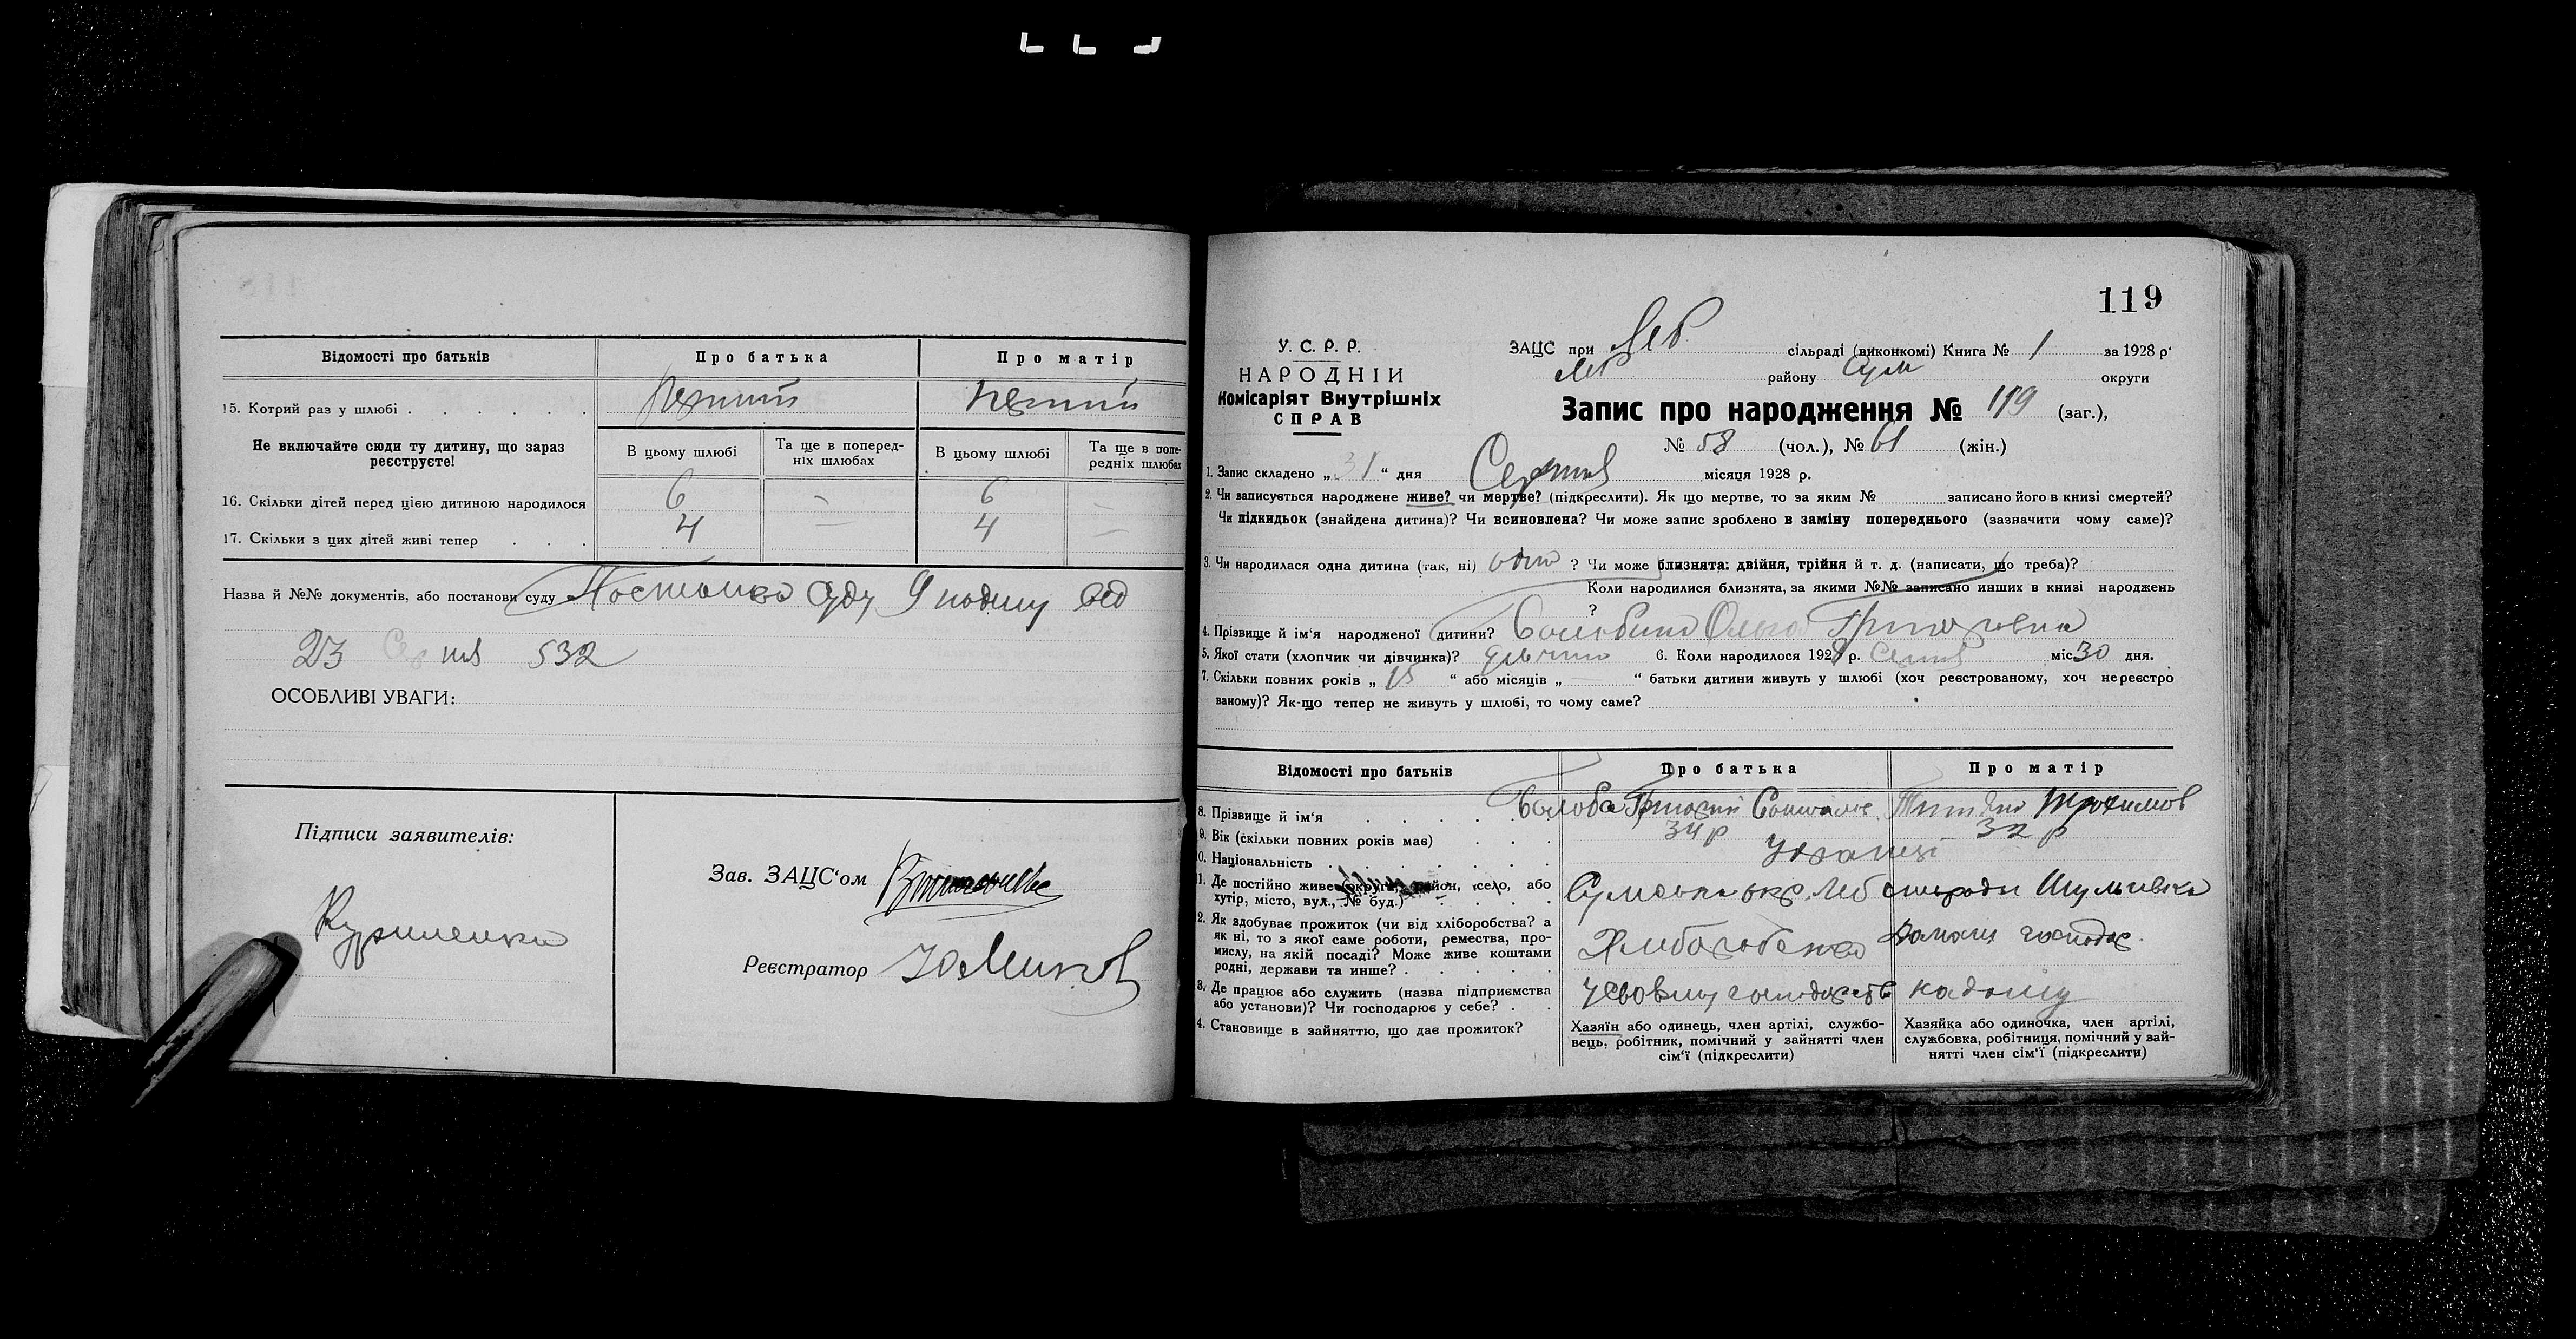 Відомості про батьків Про батька Про матір
15. Котрий раз у шлюбі . . . . . . Перший Перший
Не включайте сюди ту дитину, що зараз реєструєте!
В цьому шлюбі Та ще в попередніх шлюбах В цьому шлюбі Та ще в попередніх шлюбах
16. Скільки дітей перед цією дитиною народилося 6 — 6 —
17. Скільки з цих дітей живі тепер . . . 4 — 4 —
Назва й №№ документів, або постанови суду
23 532
ОСОБЛИВІ УВАГИ:
Підписи заявителів:
Зав. ЗАЦС‘ом
Реєстратор
119
У. С. Р. Р.
НАРОДНІЙ
Комісаріят Внутрішніх
СПРАВ
ЗАЦС при Леб сільраді (виконкомі) Книга № 1 за 1928 р.
Леб району Сум округи
Запис про народження № 119 (заг.),
№ 58 (чол.), № 61 (жін.)
1. Запис складено „31“ дня Серпня місяця 1928 р.
2. Чи записується народжене живе? чи мертве? (підкреслити). Як що мертве, то за яким № записано його в книзі смертей?
Чи підкидьок (знайдена дитина)? Чи всиновлена? Чи може запис зроблено в заміну попереднього (зазначити чому саме)?
3. Чи народилася одна дитина (так, ні) одна ? Чи може близнята: двійня, трійня й т. д. (написати, що треба)?
Коли народилися близнята, за якими №№ записано инших в книзі народжень
?
4. Прізвище й ім‘я народженої дитини? Ольга Григоровна
5. Якої стати (хлопчик чи дівчинка)? дівчина 6. Коли народилося 1928 р. Серпня міс 30 дня.
7. Скільки повних років „15“ або місяців „—“ батьки дитини живуть у шлюбі (хоч реєстрованому, хоч нереєстро
ваному)? Як-що тепер не живуть у шлюбі, то чому саме?
Відомості про батьків Про батька Про матір
8. Прізвище й ім‘я . . . . . . Григорій Трохимов
9. Вік (скільки повних років має) . . . 34 р 32 р
10. Національність . . . . . . . Українці
11. Де постійно живе (округа, район, село, або
хутір, місто, вул., № буд.) . . . . Сумська окр. Леб
2. Як здобуває прожиток (чи від хліборобства? а
як ні, то з якої саме роботи, ремества, про-
мислу, на якій посаді? Може живе коштами
родні, держави та инше? . . . . . Домашн господар.
3. Де працює або служить (назва підприємства
або установи)? Чи господарює у себе? . .
4. Становище в зайняттю, що дає прожиток?
Хазяїн або одинець, член артілі, службо-
вець, робітник, помічний у зайнятті член
сім‘ї (підкреслити)
Хазяйка або одиночка, член артілі,
службовка, робітниця, помічний у зай-
нятті член сім‘ї (підкреслити)